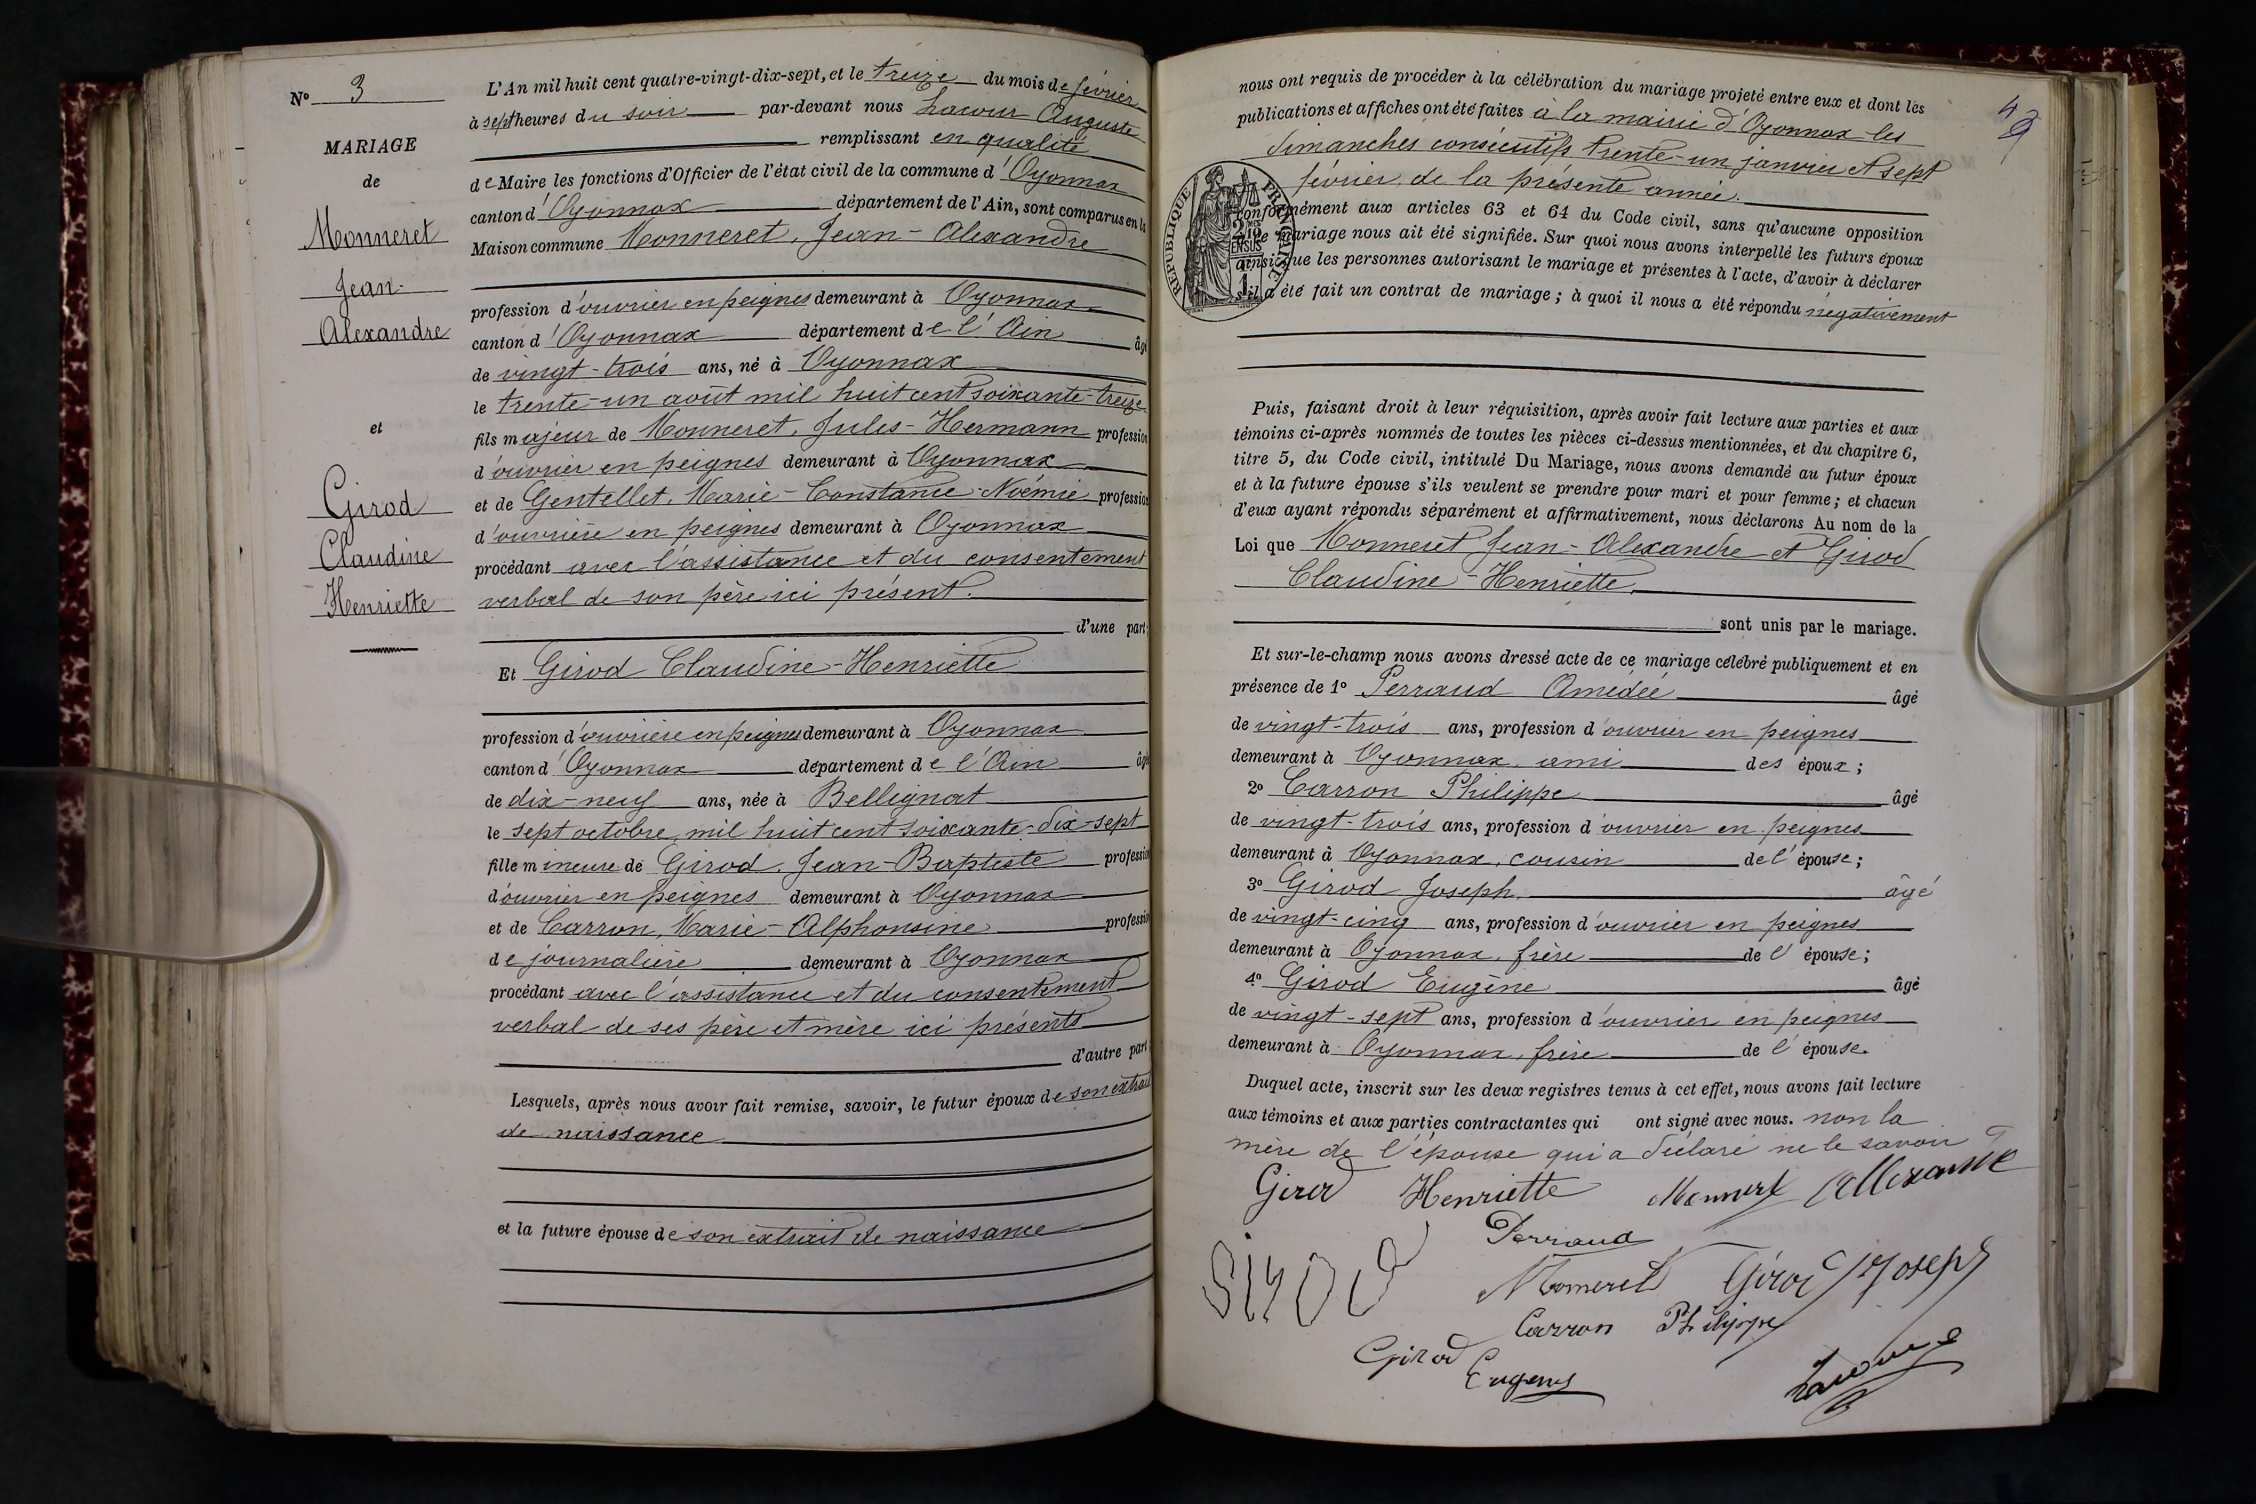 N° 3
MARIAGE
de
Monneret
Jean-
Alexandre
et
Girod
Claudine
Henriette
L'An mil huit cent quatre-vingt-dix-sept, et le treize du mois de février
à sept heures du soir par-devant nous Lacour Auguste
remplissant en qualité
de Maire les fonctions d'Officier de l'état civil de la commune d'Oyonnax
canton d'Oyonnax département de l'Ain, sont comparus en la
Maison commune Monneret, Jean-Alexandre
profession d'ouvrier en peignes demeurant à Oyonnax
canton d'Oyonnax département de l'Ain âgé
de vingt-trois ans, né à Oyonnax
le trente-un août mil huit cent soixante-treize
fils majeur de Monneret, Jules-Hermann profession
d'ouvrier en peignes demeurant à Oyonnax
et de Gentellet, Marie-Constance-Noémie profession
d'ouvrière en peignes demeurant à Oyonnax
procédant avec l'assistance et du consentement
verbal de son père ici présent.
d'une part;
Et Girod Claudine-Henriette
profession d'ouvrière en peignes demeurant à Oyonnax
canton d'Oyonnax département de l'Ain âgé
de dix-neuf ans, née à Bellignat
le sept octobre mil huit cent soixante-dix-sept
fille mineure de Girod, Jean-Baptiste profession
d'ouvrier en peignes demeurant à Oyonnax
et de Carron, Marie-Alphonsine profession
de journalière demeurant à Oyonnax
procédant avec l'assistance et du consentement
verbal de ses père et mère ici présents
d'autre part
Lesquels, après nous avoir fait remise, savoir, le futur époux de son extrait
de naissance
et la future épouse de son extrait de naissance
49
nous ont requis de procéder à la célébration du mariage projeté entre eux et dont les
publications et affiches ont été faites à la mairie d'Oyonnax les
dimanches consécutifs trente-un janvier et sept
février de la présente année.
RÉPUBLIQUE FRANÇAISE
conformément aux articles 63 et 64 du Code civil, sans qu'aucune opposition
à ce mariage nous ait été signifiée. Sur quoi nous avons interpellé les futurs époux
ainsi que les personnes autorisant le mariage et présentes à l'acte, d'avoir à déclarer
s'il a été fait un contrat de mariage; à quoi il nous a été répondu négativement
Puis, faisant droit à leur réquisition, après avoir fait lecture aux parties et aux
témoins ci-après nommés de toutes les pièces ci-dessus mentionnées, et du chapitre 6,
titre 5, du Code civil, intitulé Du Mariage, nous avons demandé au futur époux
et à la future épouse s'ils veulent se prendre pour mari et pour femme; et chacun
d'eux ayant répondu séparément et affirmativement, nous déclarons Au nom de la
Loi que Monneret Jean-Alexandre et Girod
Claudine-Henriette,
sont unis par le mariage.
Et sur-le-champ nous avons dressé acte de ce mariage célébré publiquement et en
présence de 1° Perraud Amédée âgé
de vingt-trois ans, profession d'ouvrier en peignes
demeurant à Oyonnax, ami des époux;
2° Carron Philippe âgé
de vingt-trois ans, profession d'ouvrier en peignes
demeurant à Oyonnax, cousin de l'épouse;
3° Girod Joseph, âgé
de vingt-cinq ans, profession d'ouvrier en peignes
demeurant à Oyonnax, frère de l'épouse;
4° Girod Eugène âgé
de vingt-sept ans, profession d'ouvrier en peignes
demeurant à Oyonnax, frère de l'épouse.
Duquel acte, inscrit sur les deux registres tenus à cet effet, nous avons fait lecture
aux témoins et aux parties contractantes qui ont signé avec nous. non la
mère de l'épouse qui a déclaré ne le savoir
Girod Henriette Monneret Allexandre
Perraud
Girod Monneret Girod Joseph
Carron Philippe
Girod Eugene
Lacour